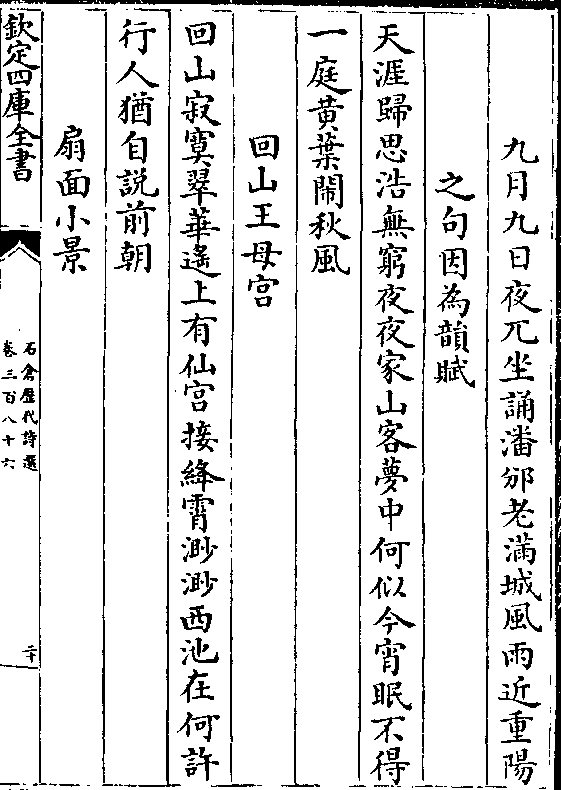 九月九日夜兀坐誦潘邠老滿城風雨近重陽
之句因為韻賦
天涯歸思浩無窮夜夜家山客夢中何似今宵眠不得
一庭黄葉鬧秋風
回山王母宫
回山寂寞翠華遙上有仙宫接絳霄渺渺西池在何許
行人猶自説前朝
扇面小景
欽定四庫全書
石倉歷代詩選
卷三百八十六
二十